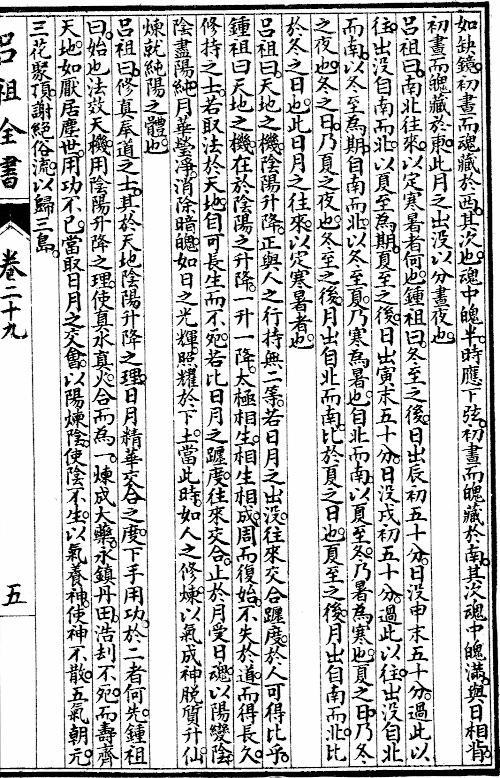 如缺鏡。初晝而魂藏於酉。其次也。魂中魄半。時應下弦。初晝而魄藏於南。其次魂中魄滿。與日相背。
初晝而魄藏於東。此月之出没。以分晝夜也。
呂祖曰。南北往來。以定寒暑者何也。鍾祖曰。冬至之後。日出辰初五十分。日没申末五十分。過此以
往。出没自南而北。以夏至爲期。夏至之後。日出寅末五十分。日没戌初五十分。過此以往。出没自北
而南。以冬至爲期。自南而北。以冬至夏。乃寒爲暑也。自北而南。以夏至冬。乃暑爲寒也。夏之日。乃冬
之夜也。冬之日。乃夏之夜也。冬至之後。月出自北而南。比於夏之日也。夏至之後。月出自南而北。比
於冬之日也。此日月之往來。以定寒暑者也。
呂祖曰。天地之機。陰陽升降。正與人之行持無二等。若日月之出没往來。交合躔度。於人可得比乎。
鍾祖曰。天地之機。在於陰陽之升降。一升一降。太極相生。相生相成。周而復始。不失於道。而得長久。
修持之士。若取法於天地。自可長生而不死。若比日月之躔度。往來交合。止於月受日魂。以陽變陰。
陰盡陽純。月華瑩淨。消除暗魄。如日之光輝。照耀於下土。當此時。如人之修煉。以氣成神。脱質升仙。
煉就純陽之體也。
呂祖曰。修真奉道之士。其於天地陰陽升降之理。日月精華交合之度。下手用功。於二者何先。鍾祖
曰。始也法效天機。用陰陽升降之理。使真水真火。合而爲一。煉成大藥。永鎮丹田。浩刦不死。而壽齊
天地。如厭居塵世。用功不已。當取日月之交會。以陽煉陰。使陰不生。以氣養神。使神不散。五氣朝元。
三花聚頂。謝絕俗流。以歸三島。
呂祖全書
卷二十九
五